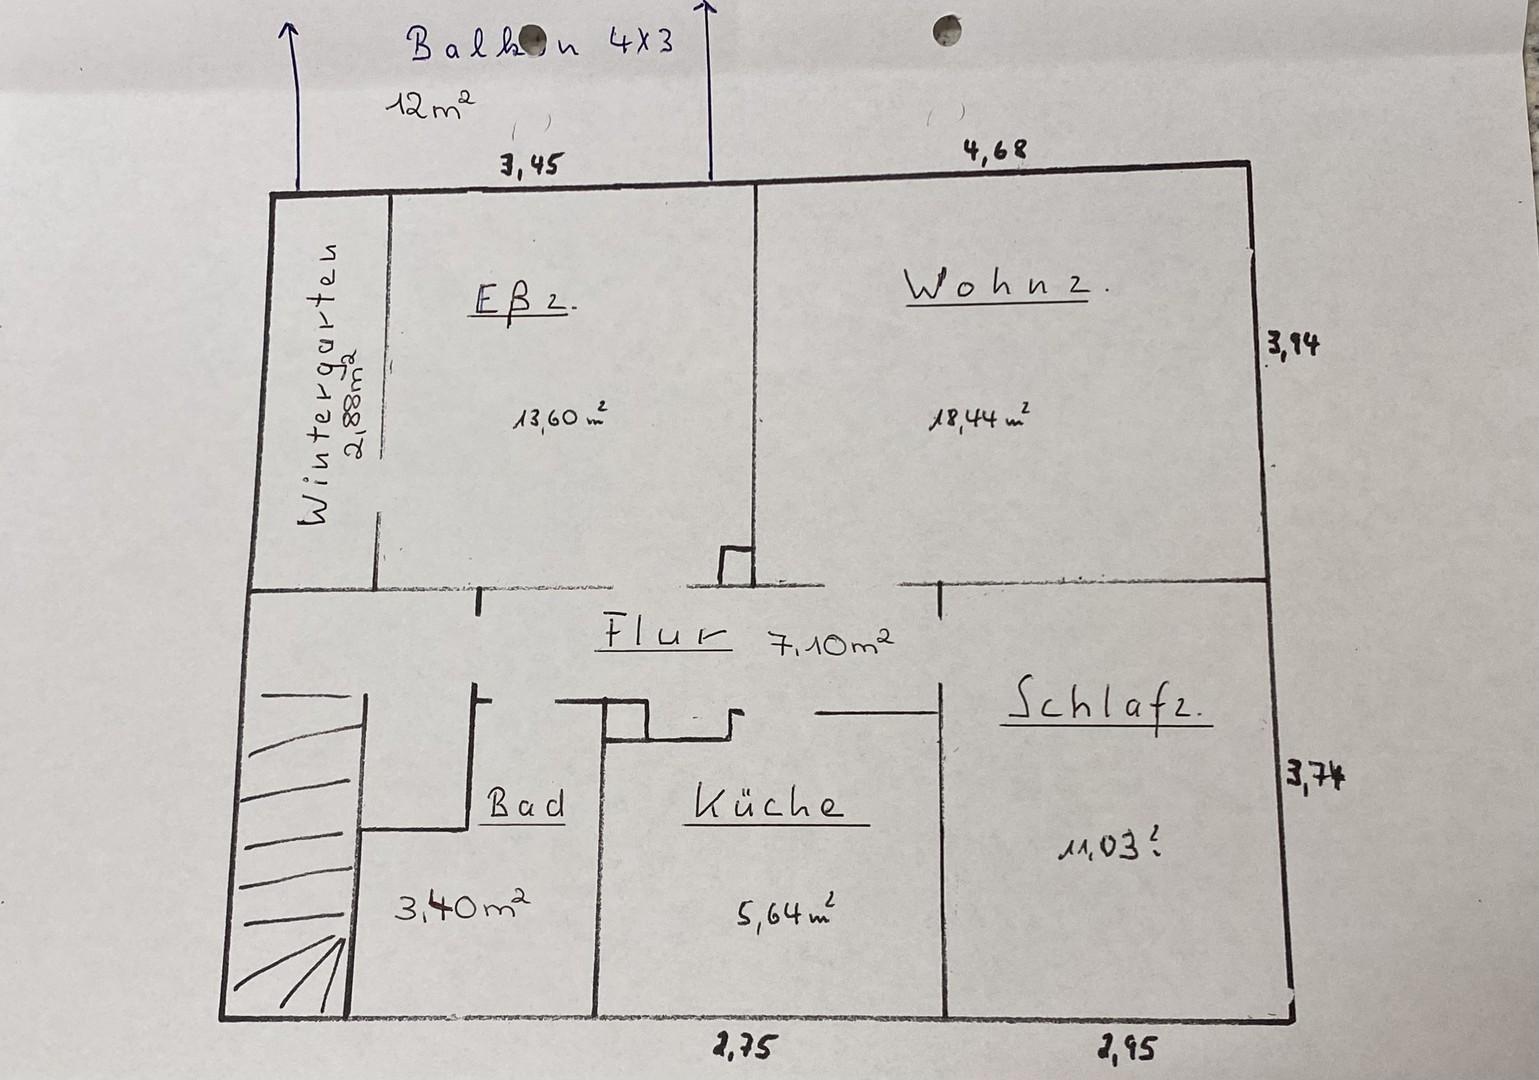 Balkon 4x3
12m²
3,45
4,68
Wintergarten
2,88m²
Eßz.
13,60 m²
Wohnz.
18,44 m²
3,94
Flur 7,10m²
Schlafz.
11,03²
3,74
Bad
3,40m²
Küche
5,64 m²
2,75
2,95